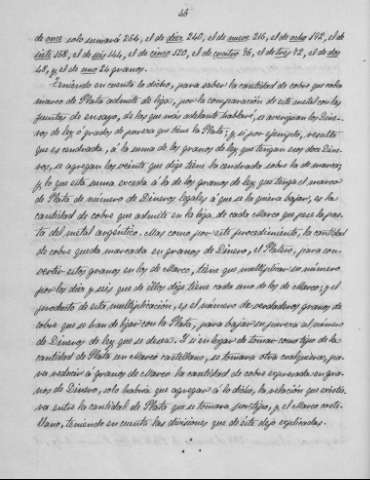 de once solo sumará 264, el de diez 240, el de nueve 216, el de ocho 192, el de
siete 168, el de seis 144, el de cinco 120, el de cuatro 96, el de tres 72, el de dos
48, y el de uno 24 granos.
Teniendo en cuenta lo dicho, para saber la cantidad de cobre que cada
marco de Plata admite de liga, por la comparación de este metal con las
puntas de ensayo, de las que mas adelante hablaré, se averiguan los Dine-
ros de ley ó grados de pureza que tiene la Plata; y si por ejemplo, resulta
que es cendrada, á la suma de los granos de ley que tengan sus doce Dine-
ros, se agregan los veinte que digo tiene la cendrada sobre la de marco;
y lo que esta suma exceda á la de los granos de ley que tenga el marco
de Plata de número de Dineros legales á que se la quiera bajar, es la
cantidad de cobre que admite en la liga de cada Marco que pese la pas-
ta del metal argéntico. Mas como por este procedimiento, la cantidad
de cobre queda marcada en granos de Dinero, el Platero, para con-
vertir estos granos en los de Marco, tiene que multiplicar su número
por los diez y seis que de ellos digo tiene cada uno de los de Marco; y el
producto de esta multiplicación, es el número de verdaderos granos de
cobre que se han de ligar con la Plata, para bajar su pureza al número
de Dineros de ley que se desea. Y si en lugar de tomar como tipo de la
cantidad de Plata un Marco castellano, se tomara otra cualquiera, pa-
ra reducir á granos de Marco la cantidad de cobre expresada en gra-
nos de Dinero, solo habria que agregar á lo dicho, la relación que existie-
ra entre la cantidad de Plata que se tomara por tipo, y el Marco caste-
llano, teniendo en cuenta las divisiones que de éste dejo explicadas.